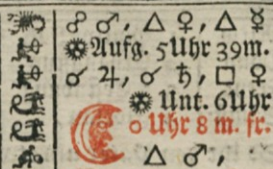 ☍ ♂, △ ♀, △ ☿
Aufg. 5Uhr 39m.
☌ ♃, ☌ ♄, □ ♀
Unt. 6Uhr
0 Uhr 8 m. fr.
△ ♂,